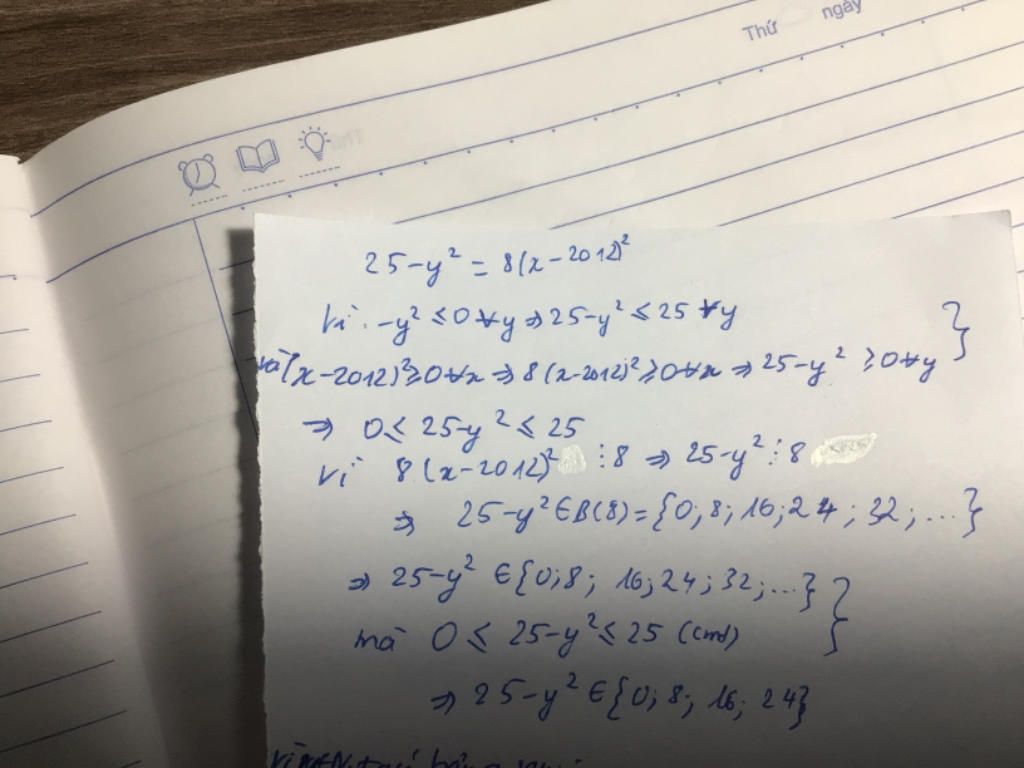 Thứ ngày
25-y² = 8(x-2012)²
Vì -y² ≤ 0 ∀y ⇒ 25-y² ≤ 25 ∀y
và (x-2012)² ≥ 0 ∀x ⇒ 8(x-2012)² ≥ 0 ∀x ⇒ 25-y² ≥ 0 ∀y }
⇒ 0 ≤ 25-y² ≤ 25
Vì 8(x-2012)² ⋮ 8 ⇒ 25-y² ⋮ 8
⇒ 25-y² ∈ B(8) = {0; 8; 16; 24; 32; ...}
⇒ 25-y² ∈ {0; 8; 16; 24; 32; ...}
mà 0 ≤ 25-y² ≤ 25 (cmt) }
⇒ 25-y² ∈ {0; 8; 16; 24}